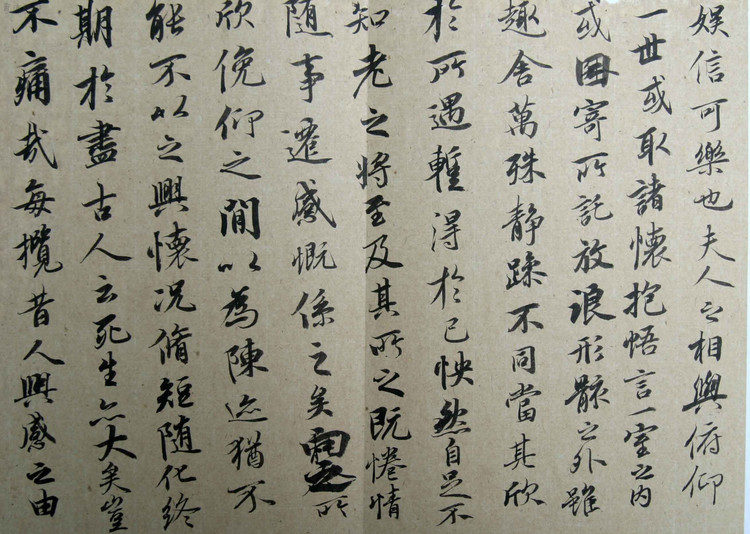 娛信可樂也夫人之相與俯仰
一世或取諸懷抱悟言一室之内
或因寄所託放浪形骸之外雖
趣舍萬殊静躁不同當其欣
於所遇暫得於己怏然自足不
知老之将至及其所之既惓情
随事遷感慨係之矣向之所
欣俛仰之閒以為陳迹猶不
能不以之興懷况脩短随化終
期於盡古人云死生亦大矣豈
不痛哉每攬昔人興感之由